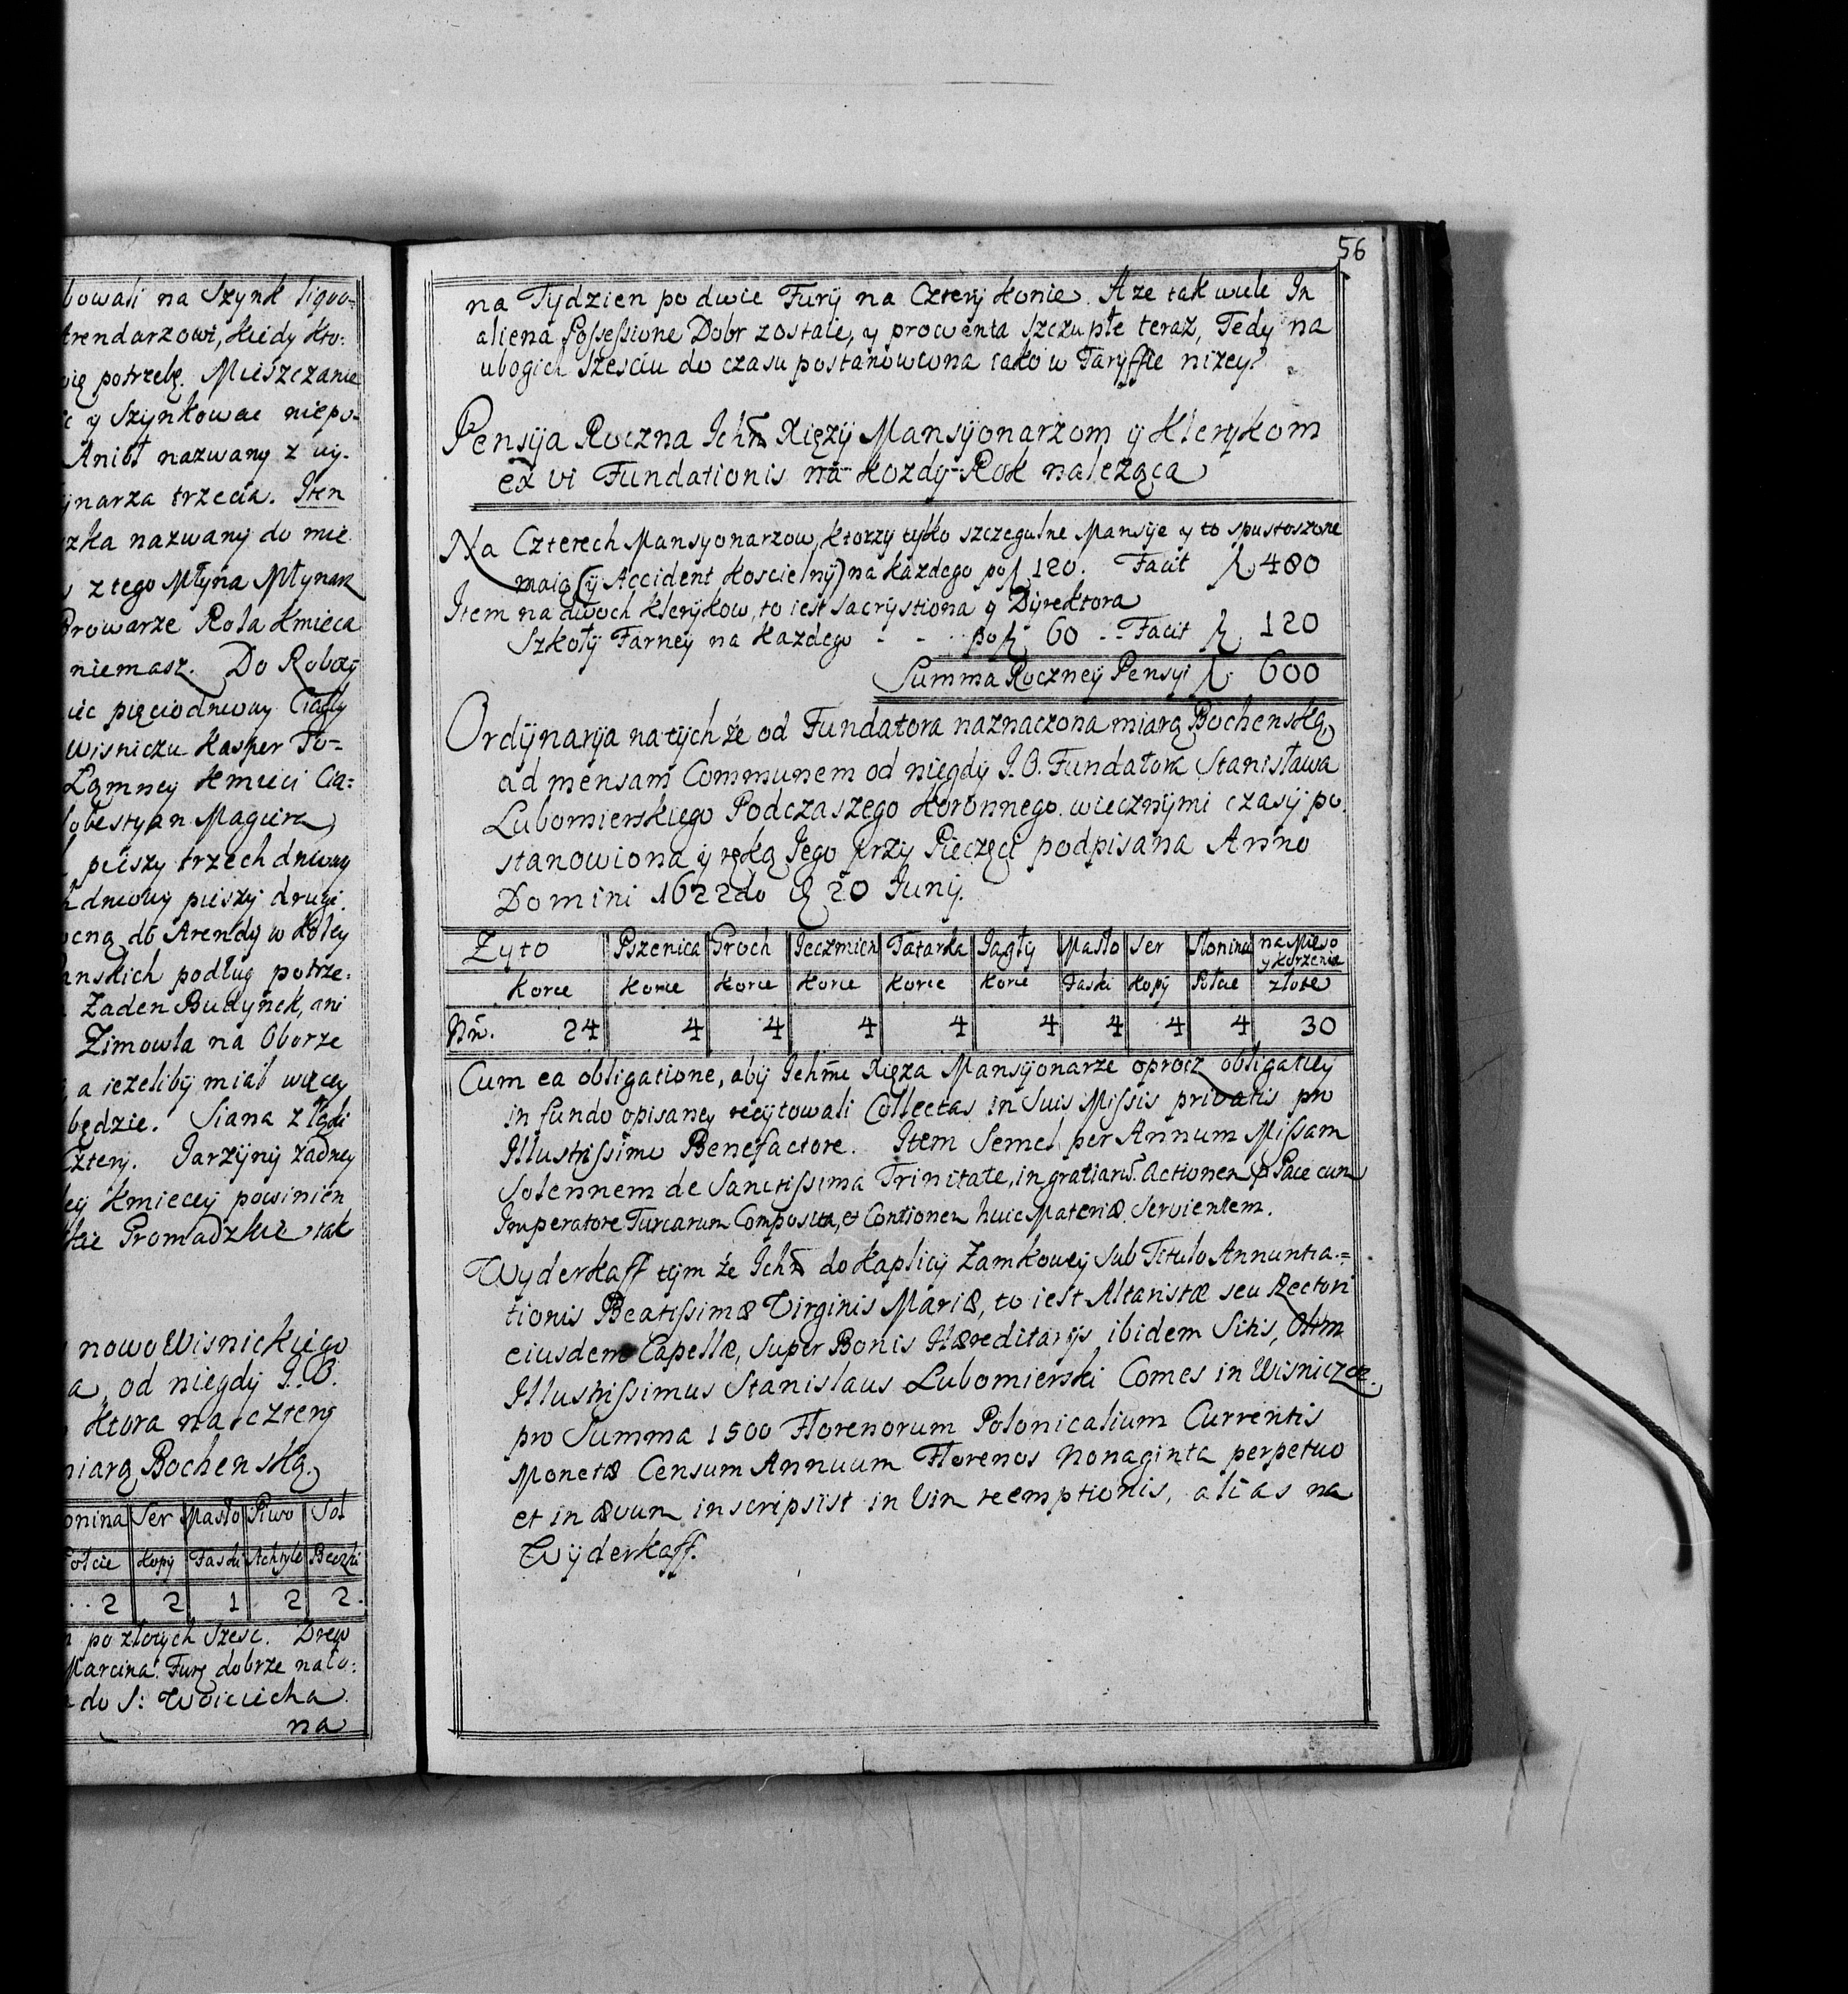 bowali na Szynk liquo=
Arendarzowi, kiedy kto:
potrzebę. Mieszczanie
y Szynkowac niepo-
Anioł nazwany z wy-
trzecia. Item
nazwany do mie
z tego Młyna Młynarz
Browarze Rola Kmieca
niemasz. Do Roboty
pięciodniowy Ciągły
Wisniczu Kasper
Łomney Kmieci Cią=
Magiera
pieszy trzech dniowy
dniowy pieszy drugi.
do Arendy w Koley
podług potrze:
Zaden Budynek, ani
Zimowla na Oborze
a iezeliby miał więcey
będzie. Siana z łąki
Cztery. Jarzyny zadney
Kmiecey powinien
Gromadzkie tak
nowo Wisnickiego
od niegdy J. O.
ktora na cztery
miarą Bochenską
Ser Masło Piwo Sol
Kopy Faski Achtyle Beczki
2 2 1 2 2.
po złotych Szesc. Drew
Marcina Furę dobrze nało:
do S: Woiciecha
na
56
na Tydzien po dwie Fury na Cztery Konie. A ze tak wiele In
aliena Possessione Dobr zostaie, y prowenta szczupłe teraz, Tedy na
ubogich Szesciu do czasu postanowiona iako w Taryffie nizey.
Pensyia Roczna Ichm Xięzy Mansyonarzom y Klerykom
ex vi Fundationis na kozdy Rok naleząca
Na Czterech Mansyonarzow, ktorzy tylko szczegulne Mansye y to spustoszone
maią (y Accident Koscielny) na kazdego po f 120. Facit f. 480
Item na dwoch Klerykow, to iest Sacrystiona y Dyrektora
Szkoły Farney na kazdego - - .. po f 60 .. Facit f. 120
Summa Roczney Pensyi f. 600
Ordynarya na tych że od Fundatora naznaczona miarą Bochenską,
ad mensam Communem od niegdy J. O. Fundatora Stanisława
Lubomierskiego Podczaszego Koronnego wiecznymi czasy po:
stanowiona y ręką Jego przy Pieczęci podpisana Anno
Domini 1622 20 Junij.
Zyto Pszenica Groch Ieczmien Tatarka Iagły Masło Ser Słonina na Mięso y Korzenia
Korce Korce Korce Korce Korce Korce Faski Kopy Połcie złote
Nro. 24 4 4 4 4 4 4 4 4 30
Cum ea obligatione, aby Ichmc Xięza Mansyonarze oprocz obligaciey
in fundo opisaney recytowali Collectas in Suis Missis privatis pro
Illustrissimo Benefactore. Item Semel per Annum Missam
Solennem de Sanctissima Trinitate, in gratiaru actionem p Pace cum
Imperatore Turcarum Composita, et Contionem huic Materiæ Servientem.
Wyderkaff tym że Ichm do Kaplicy Zamkowey Sub Titulo Annuntia-=
tionis Beatissimæ Virginis Mariæ, to iest Altaristæ seu Rectori
eiusdem Capellæ, Super Bonis Hæreditarijs ibidem Sitis, Olim
Illustrissimus Stanislaus Lubomierski Comes in Wisnicze.
pro Summa 1500 Florenorum Polonicalium Currentis
Monetæ Censum Annuum Florenos Nonaginta perpetuo
et in ævum inscripsist in Vim reemptionis, alias na
Wyderkaff.